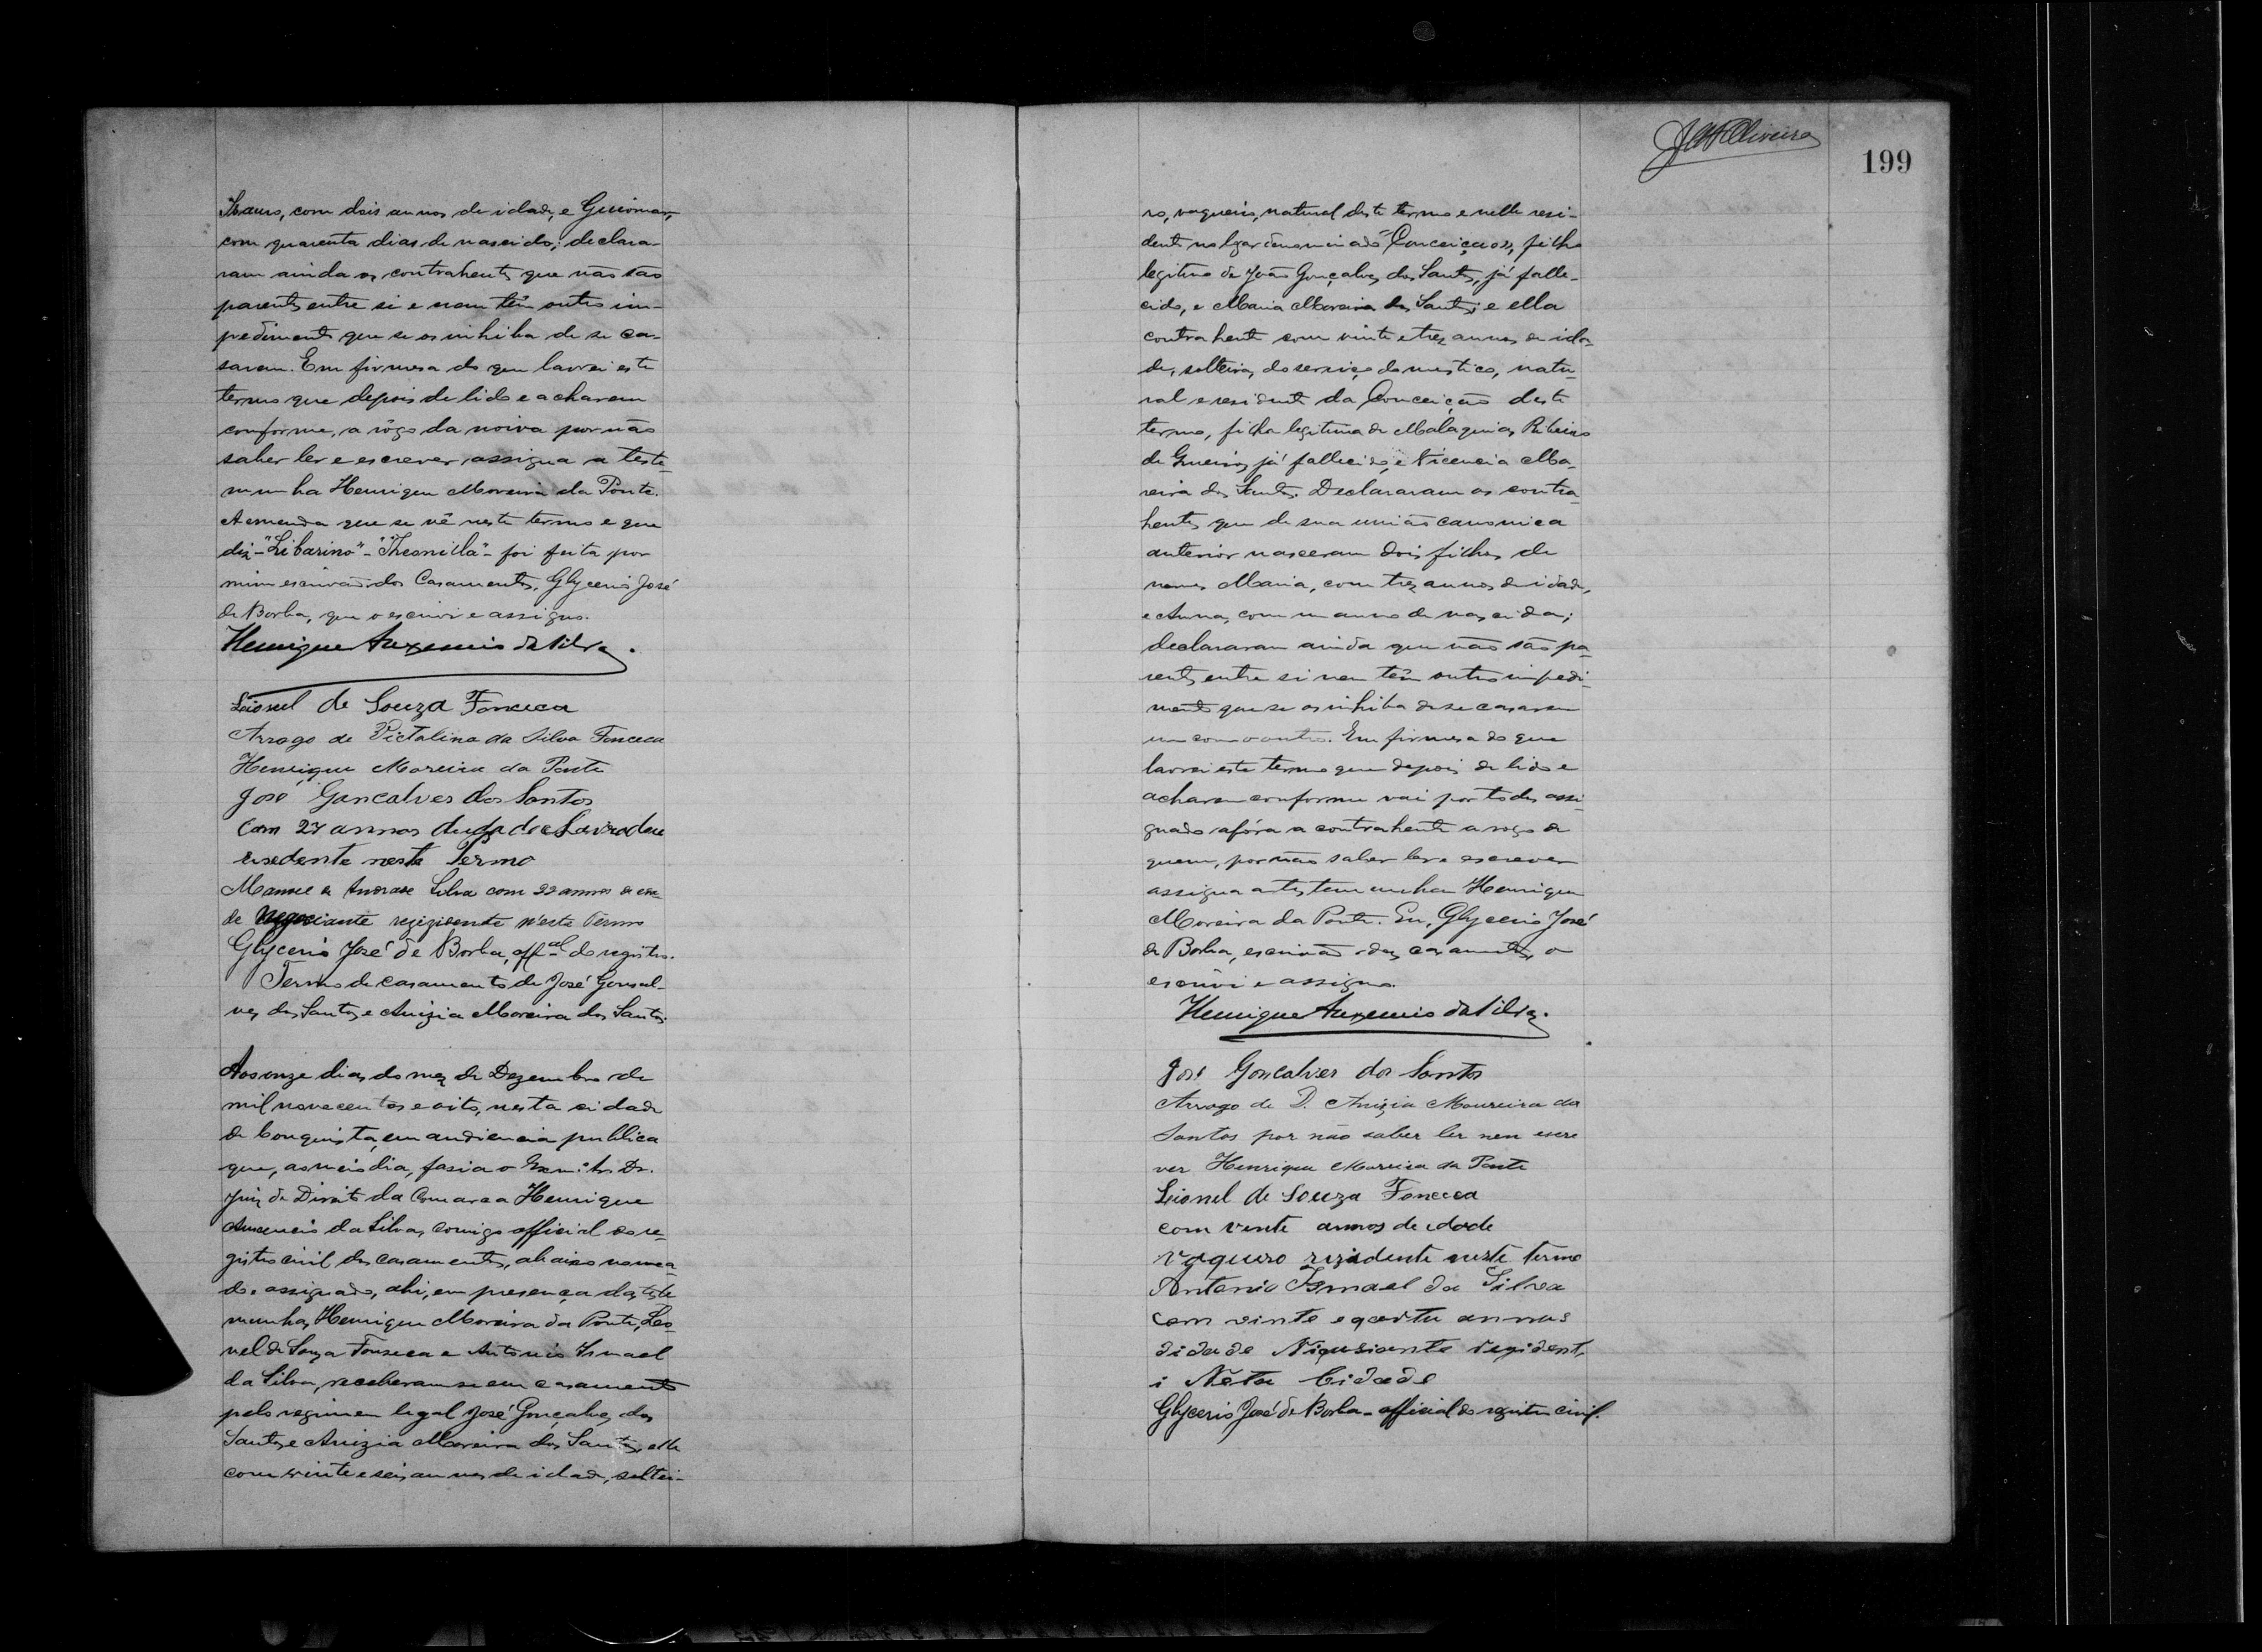 com dois annos de idade, e Guiomar,
com quarenta dias de nascido; declara-
ram ainda os contrahentes que não são
parentes entre si e nem têm outro im-
pedimento que se os inhiba de se ca-
sarem. Em firmesa do que lavrei este
termo que depois de lido e acharem
conforme, a rôgo da noiva por não
saber ler e escrever assigna a teste-
munha Henrique Moreira da Ponte.
A emenda que se vê neste termo e que
diz - "Libarino" - "Theonilla" - foi feita por
mim escrivão dos Casamentos, Glycerio José
de Borba, que o escrivi e assigno.
Henrique Auxencio da Silva.
Leionel de Souza Fonceca
Arrogo de Victalina da Silva Fonceca
Henrique Moreira da Ponte
José Gancalves dos Santos
Com 27 annos Lavrador
resedente neste Termo
Manoel de Andrade Silva com 22 annos de eda-
de Negociante rezizidente n'este Termo
Glycerio José de Borba, offal do registro.
Termo de casamento de José Gonsal-
ves dos Santos e Anizia Moreira dos Santos.
Aos onze dias do mez de Dezembro de
mil novecentos e oito, nesta cidade
de Conquista, em audiencia publica
que, ao meio dia, fasia o Exmo. Sr. Dr.
Juiz de Direito da Comarca Henrique
Auxencio da Silva, comigo official do re-
gistro civil dos casamentos, abaixo nomea-
do e assignado, ahi, em presença das teste-
munhas Henrique Moreira da Ponte, Leo-
nel de Souza Fonseca e Antonio Ismael
da Silva, receberam-se em casamento
pelo regimen legal José Gonçalves dos
Santos e Anizia Moreira dos Santos, elle
com vinte e seis annos de idade, soltei-
JAFOliveira
199
ro, vaqueiro, natural deste termo e nelle resi-
dente no lugar denominado "Conceição", filho
legitimo de João Gonçalves dos Santos, já falle-
cido, e Maria Moreira dos Santos; e ella
contrahente com vinte e tres annos de ida-
de, solteira, do serviço domestico, natu-
ral e residente da Conceição deste
termo, filha legitima de Malaquias Ribeiro
de já fallecido, e Vicencia Mo-
reira dos Santos. Declararam os contra-
hentes que de sua união canonica
anterior nasceram dois filhos de
nomes Maria, com tres annos de idade,
e Anna, com um anno de nascida;
declararam ainda que não são pa-
rentes entre si nem têm outro impedi-
mento que se os inhiba de se casarem
um com o outro. Em firmesa do que
lavrei este termo que depois de lido e
acharem conforme vai por todos assi-
gnado afóra a contrahente a rogo de
quem, por não saber ler e escrever
assigna a testemunha Henrique
Moreira da Ponte. Eu, Glycerio José
de Borba, escrivão dos casamentos, o
escrivi e assigno.
Henrique Auxencio da Silva.
José Goncalves dos Santos
Arrogo de D. Anizia Moureira da
Santos por não saber ler nem escre
ver Henrique Moreira da Ponte
Leionel de Souza Fonceca
com vente annos de edade
Vaquero rezidente neste termo
Antonio Ismael da Silva
com vinte e annos
didade Niqusiante rezident
i Nesta Cidade
Glycerio José de Borba - official do registro civil.